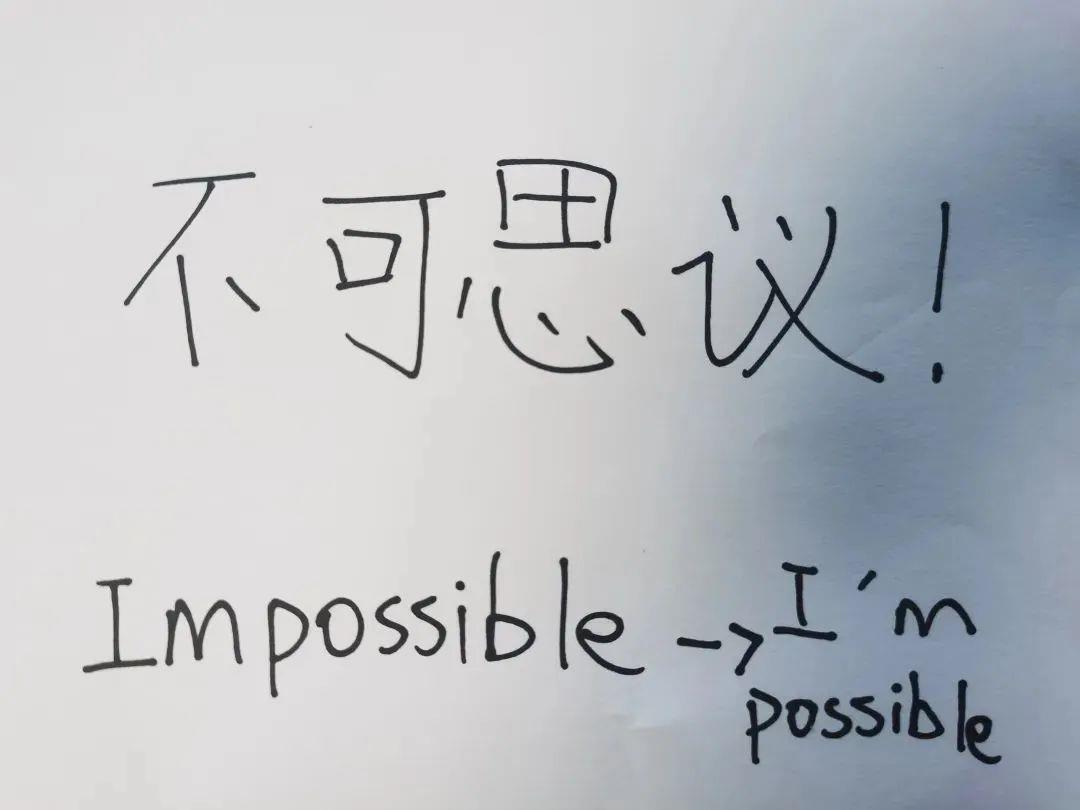 不可思议!
Impossible -> I'm
possible